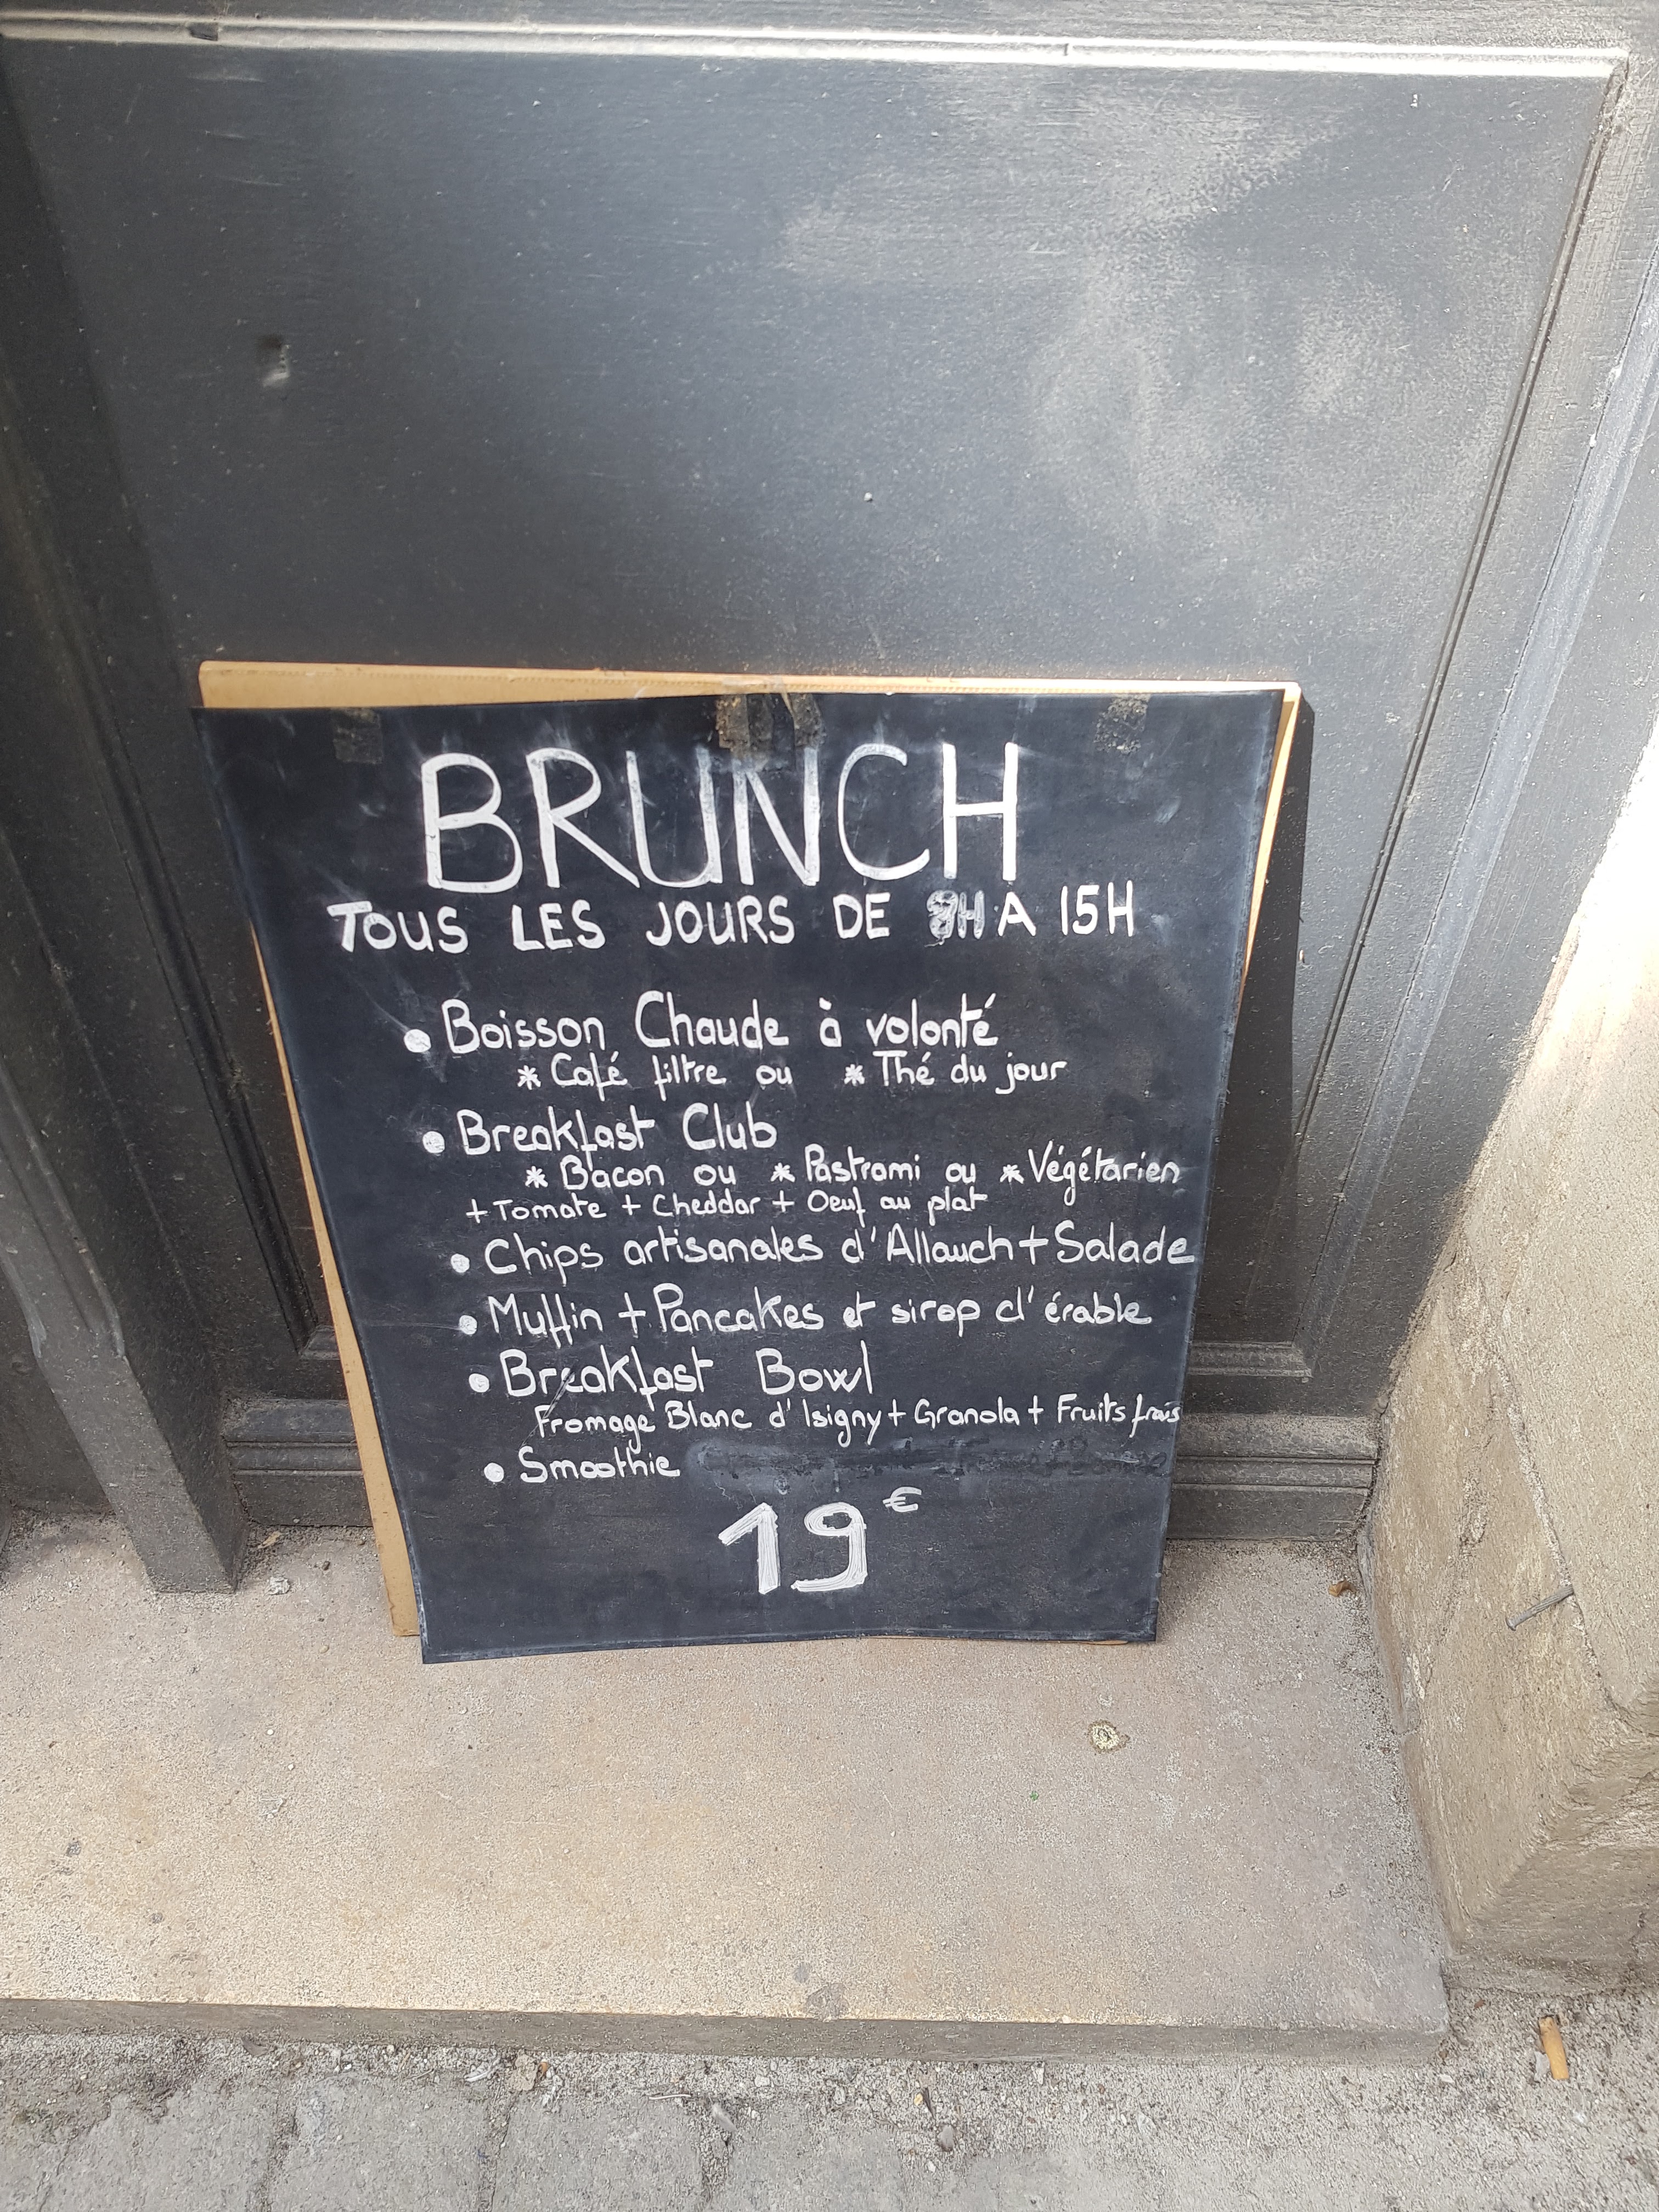 BRUNCH
TOUS LES JOURS DE À 15H
• Boisson Chaude à volonté
* Café filtre ou * Thé du jour
• Breakfast Club
* Bacon ou * Pastrami ou * Végétarien
+ Tomate + Cheddar + Oeuf au plat
• Chips artisanales d'Allauch + Salade
• Muffin + Pancakes et sirop d'érable
• Breakfast Bowl
Fromage Blanc d'Isigny + Granola + Fruits frais
• Smoothie
19€